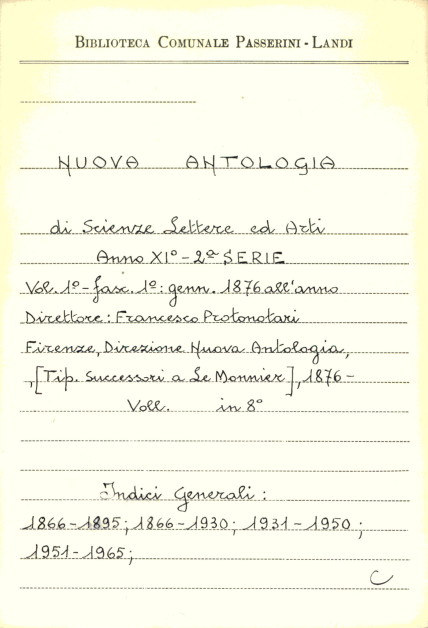 BIBLIOTECA COMUNALE PASSERINI - LANDI
NUOVA ANTOLOGIA
di Scienze Lettere ed Arti
Anno XI° - 2ª SERIE
Vol. 1° - fasc. 1°: genn. 1876 all'anno
Direttore: Francesco Protonotari
Firenze, Direzione Nuova Antologia,
,[Tip. Successori a Le Monnier], 1876 -
Voll. in 8°
Indici Generali:
1866-1895; 1866-1930; 1931-1950;
1951-1965;
C